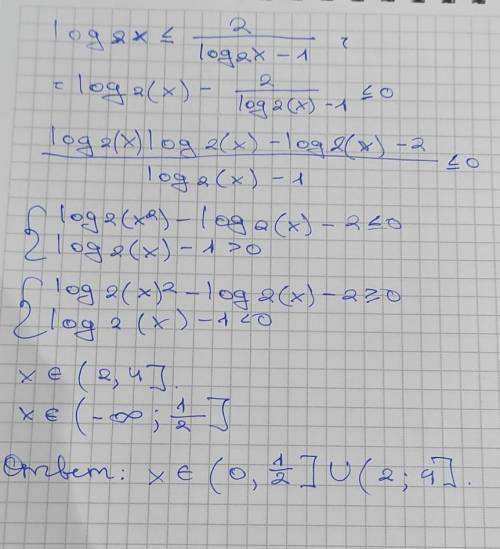 log2x ≤ 2/(log2x - 1) ;
= log2(x) - 2/(log2(x) - 1) ≤ 0
(log2(x) log2(x) - log2(x) - 2)/(log2(x) - 1) ≤ 0
{ log2(x2) - log2(x) - 2 ≤ 0
log2(x) - 1 > 0
{ log2(x)2 - log2(x) - 2 ≥ 0
log2(x) - 1 < 0
x ∈ (2, 4].
x ∈ (-∞; 1/2]
Ответ: x ∈ (0, 1/2] ∪ (2; 4].